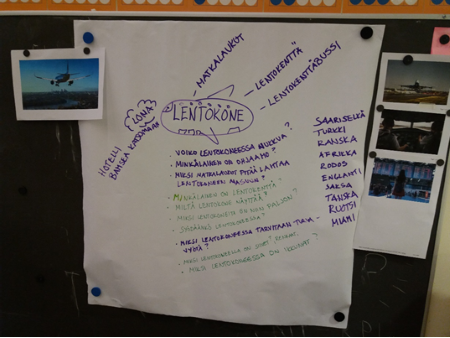 MATKALAUKUT
LENTOKENTTÄ
LENTOKENTTÄBUSSI
LOMA
LENTOKONE
HOTELLI
VOIKO LENTOKONEESSA NUKKUA?
MINKÄLAINEN ON OHJAAMO?
MIKSI MATKALAUKUT PITÄÄ LAITTAA
LENTOKONEEN MAHAAN?
MINKÄLAINEN ON LENTOKENTTÄ?
MILTÄ LENTOKONE NÄYTTÄÄ?
MIKSI LENTOKONEITA ON NIIN PALJON?
SYÖDÄÄNKÖ LENTOKONEESSA?
MIKSI LENTOKONEESSA TARVITAAN TURVA-
VYÖTÄ?
MIKSI LENTOKONEESSA ON
MIKSI LENTOKONEESSA ON IKKUNAT?
SAARISELKÄ
TURKKI
RANSKA
AFRIKKA
RODOS
ENGLANTI
SAKSA
TANSKA
RUOTSI
MIAMI